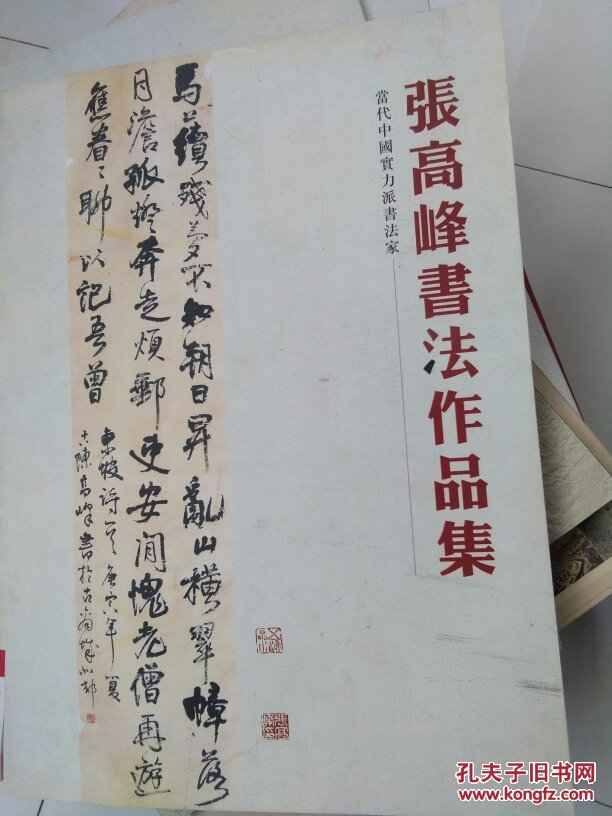 張高峰書法作品集
當代中國實力派書法家
馬上續殘夢不知朝日昇亂山橫翠幛落
月澹孤燈奔走煩郵吏安閒愧老僧再遊
應眷〻聊以記吾曾
東坡詩 庚寅年夏
古陳高峰書於古
孔夫子旧书网
www.kongfz.com